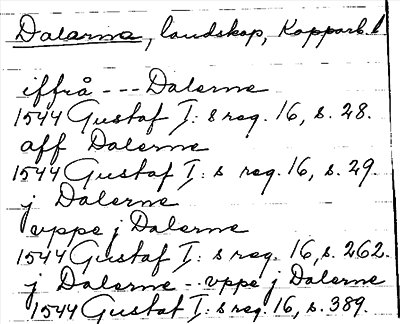 Dalarna, landskap, Kopparb. l
iffrå --- Dalerne
1544 Gustaf I: s reg. 16, s. 28.
aff Dalerne
1544 Gustaf I: s reg. 16, s. 29.
j Dalerne
vppe j Dalerne
1544 Gustaf I: s reg. 16, s. 262.
j Dalerne -- vppe j Dalerne
1544 Gustaf I: s reg. 16, s. 389.